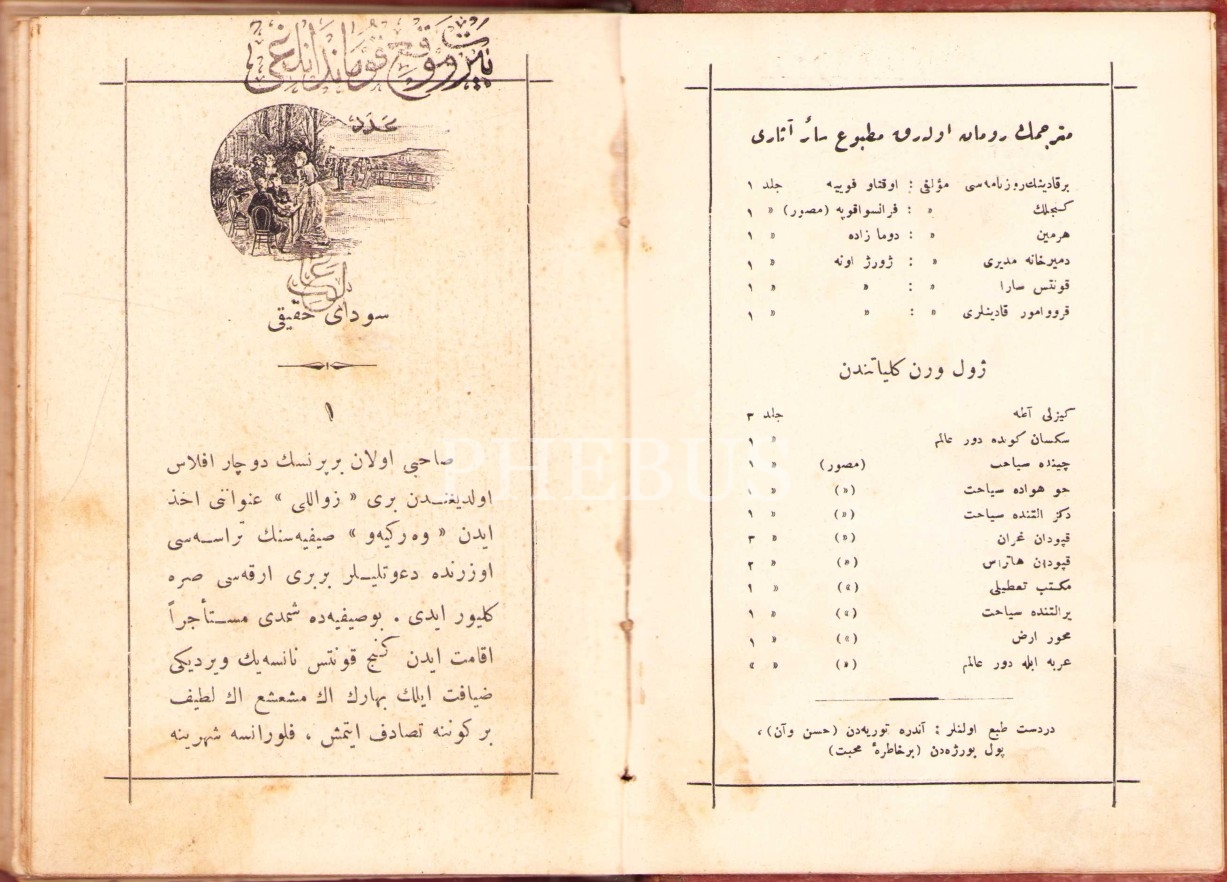 مترجمك رومان اولەرق مطبوع سائر آثاری
برقادینك روزنامه‌سی مؤلفی : اوقتاو فوییه جلد ١
كنجلك » : فرانسوا قوپه (مصور) » ١
هرمین » : دوما زاده » ١
دمیرخانه مدیری » : ژورژ اونه » ١
قونتس سارا » : » » ١
قرووامور قادینلری » : » » ١
ژول ورن كلیاتندن
كیزلی آطه جلد ٣
سكسان كونده دور عالم » ١
چینده سیاحت (مصور) » ١
جو هواده سیاحت (») » ١
دكز التنده سیاحت (») » ١
قپودان غران (») » ٣
قپودان هاتراس (») » ٢
مكتب تعطیلی (») » ١
یرالتنده سیاحت (») » ١
محور ارض (») » ١
عربه ایله دور عالم (») » »
دردست طبع اولنلر : آندره توریه‌دن (حسن وآن) ،
پول بورژه‌دن (برخاطرهٔ محبت)
موقع قوماندانلغی
عدد
سودای حقیقی
١
صاحبی اولان برپرنسك دوچار افلاس
اولدیغندن بری « زواللی » عنواننی اخذ
ایدن « وه‌ركیه‌و » صیفیه‌سنك تراسه‌سی
اوزرنده دعوتلیلر بربری ارقه‌سی صره
كلیور ایدی . بوصیفیه‌ده شمدی مستأجراً
اقامت ایدن كنج قونتس نانسه‌یك ویردیكی
ضیافت ایلك بهارك اك مشعشع اك لطیف
بركوننه تصادف ایتمش ، فلورانسه شهرینه
PHEBUS